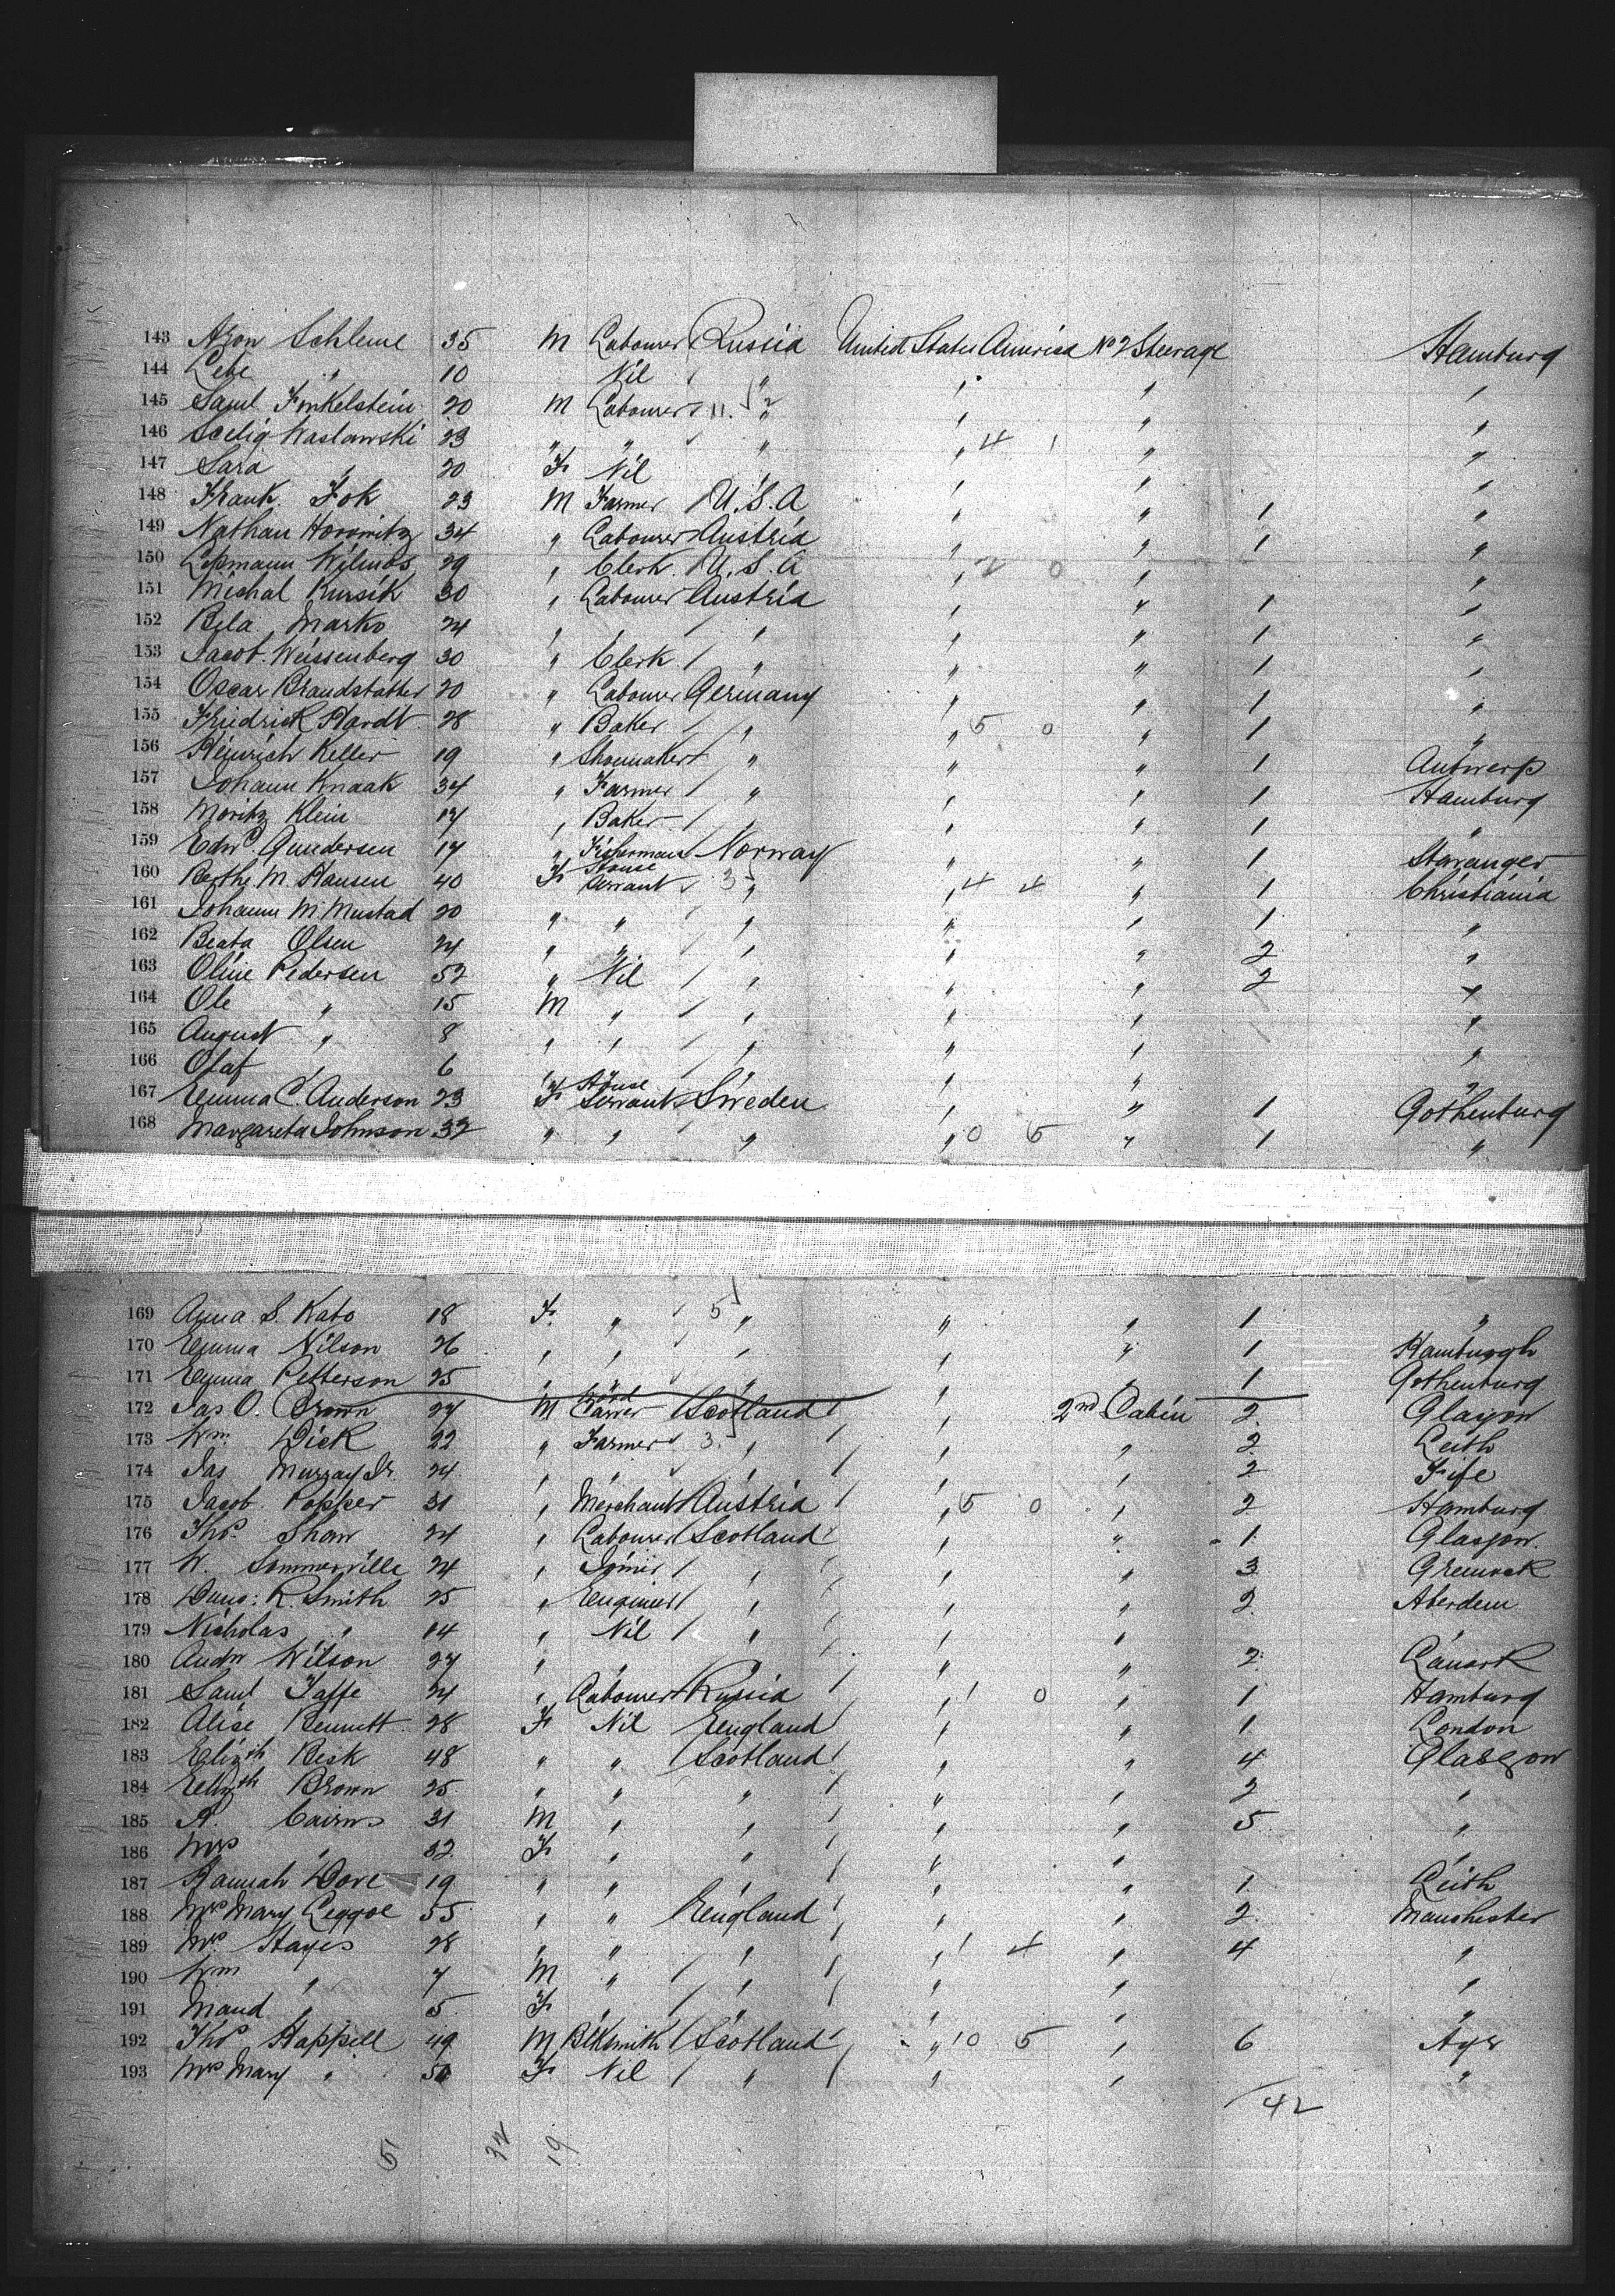 143 Aron Schleme 35 M Labourer Russia United States America No 2 Steerage Hamburg
144 Lebe " 10 Nil " " " "
145 Saml Finkelstein 20 M Labourer 11. 2 " " " "
146 Seelig Waslawski 23 " " " " 4 1 " "
147 Sara " 20 F Nil " " " "
148 Frank Fok 23 M Farmer U.S.A " " 1 "
149 Nathan Horowitz 34 " Labourer Austria " " 1 "
150 Wilmos 29 " Clerk U.S.A " 2 0 " "
151 Michal Kursik 30 " Labourer Austria " " 1 "
152 Bela Marko 24 " " " " " 1 "
153 Jacob Weissenberg 30 " Clerk " " " 1 "
154 Oscar Brandstatter 20 " Labourer Germany " " 1 "
155 Friedrick Hardt 28 " Baker " " 5 0 " 1 "
156 Heinrich Keller 19 " Shoemaker " " " 1 Antwerp
157 Johann Knaak 34 " Farmer " " " 1 Hamburg
158 Moritz Klein 17 " Baker " " " 1 "
159 Edwd Gundersen 17 " Fisherman Norway " " 1 Stavanger
160 Berthe M. Hansen 40 F House Servant 3 " " 4 4 " 1 Christiania
161 Johanne M Mustad 20 " " " " " 1 "
162 Beata Olsen 24 " " " " " 2 "
163 Oline Pedersen 52 " Nil " " " 2 "
164 Ole " 15 M " " " " "
165 August " 8 " " " " " "
166 Olaf " 6 " " " " " "
167 Emma C. Anderson 23 F House Servant Sweden " " 1 Gothenburg
168 Margareta Johnson 32 " " " " 0 5 " 1 "
169 Anna S. Kato 18 F " 5 " " " 1 "
170 Emma Nilson 26 " " " " " 1 Hamburgh
171 Emma Petterson 25 " " " " " 1 Gothenburg
172 Jas O. Brown 27 M Wood Carver Scotland " 2nd Cabin 2 Glasgow
173 Wm Dick 22 " Farmer 3 " " " 2 Leith
174 Jas Murray Jr. 24 " " " " " 2 Fife
175 Jacob Popper 31 " Merchant Austria " 5 0 " 2 Hamburg
176 Thos Shaw 24 " Labourer Scotland " " 1 Glasgow.
177 W. Sommerville 24 " " " " 3
178 R. Smith 25 " Engineer " " " 2 Aberdeen
179 Nicholas " 14 " Nil " " "
180 Andw Wilson 27 " " " " " 2 Lanark
181 Saml Jaffe 24 " Labourer Russia " 1 0 " 1 Hamburg
182 Alise Bennett 28 F Nil England " " 1 London
183 Elizth Beck 48 " " Scotland " " 4 Glasgow
184 Elizth Brown 25 " " " " " 2 "
185 A. Cairns 31 M " " " " 5 "
186 Mrs " 32 F " " " " "
187 Hannah Dove 19 " " " " " 1 Leith
188 Mrs Mary Leggoe 55 " " England " " 2 Manchester
189 Mrs Hayes 28 " " " " 1 4 " 4 "
190 Wm " 7 M " " " " "
191 Maud " 5 F " " " " "
192 Thos Happell 49 M Blksmith Scotland " 10 5 " 6 Ayr
193 Mrs Mary " 50 F Nil " " " "
42
51 32 19